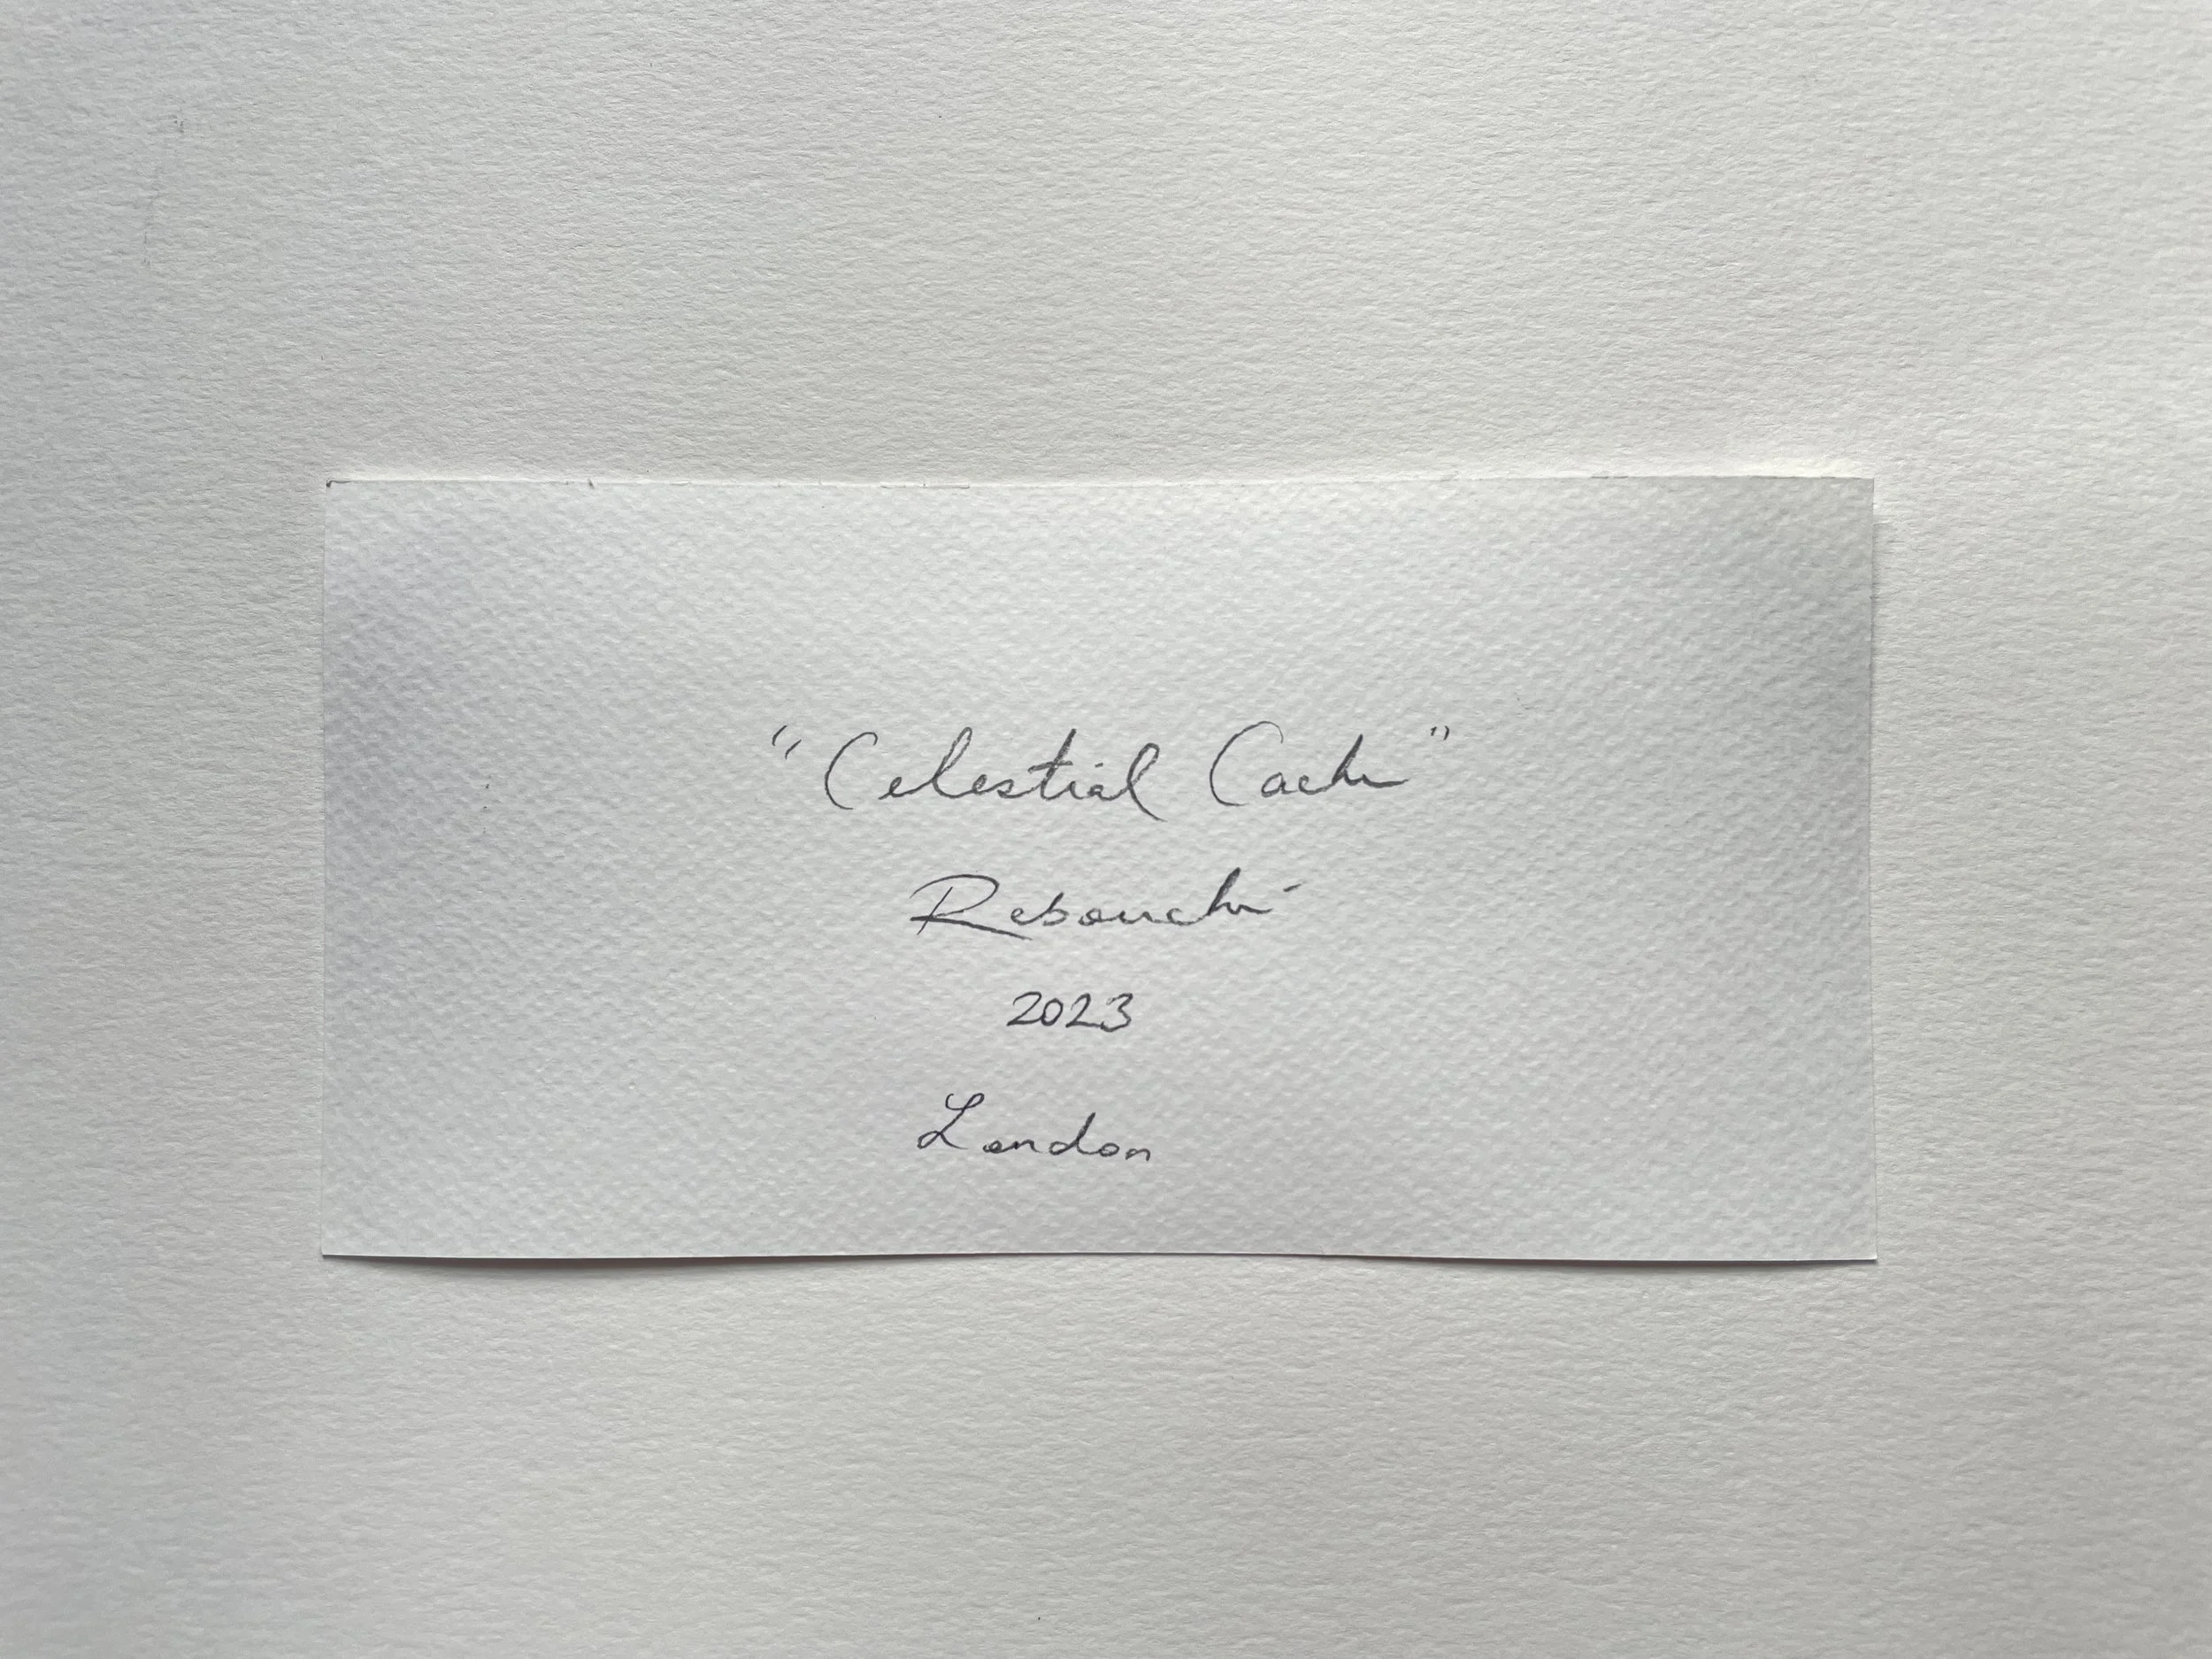 "Celestial Cache"
Rebouché
2023
London